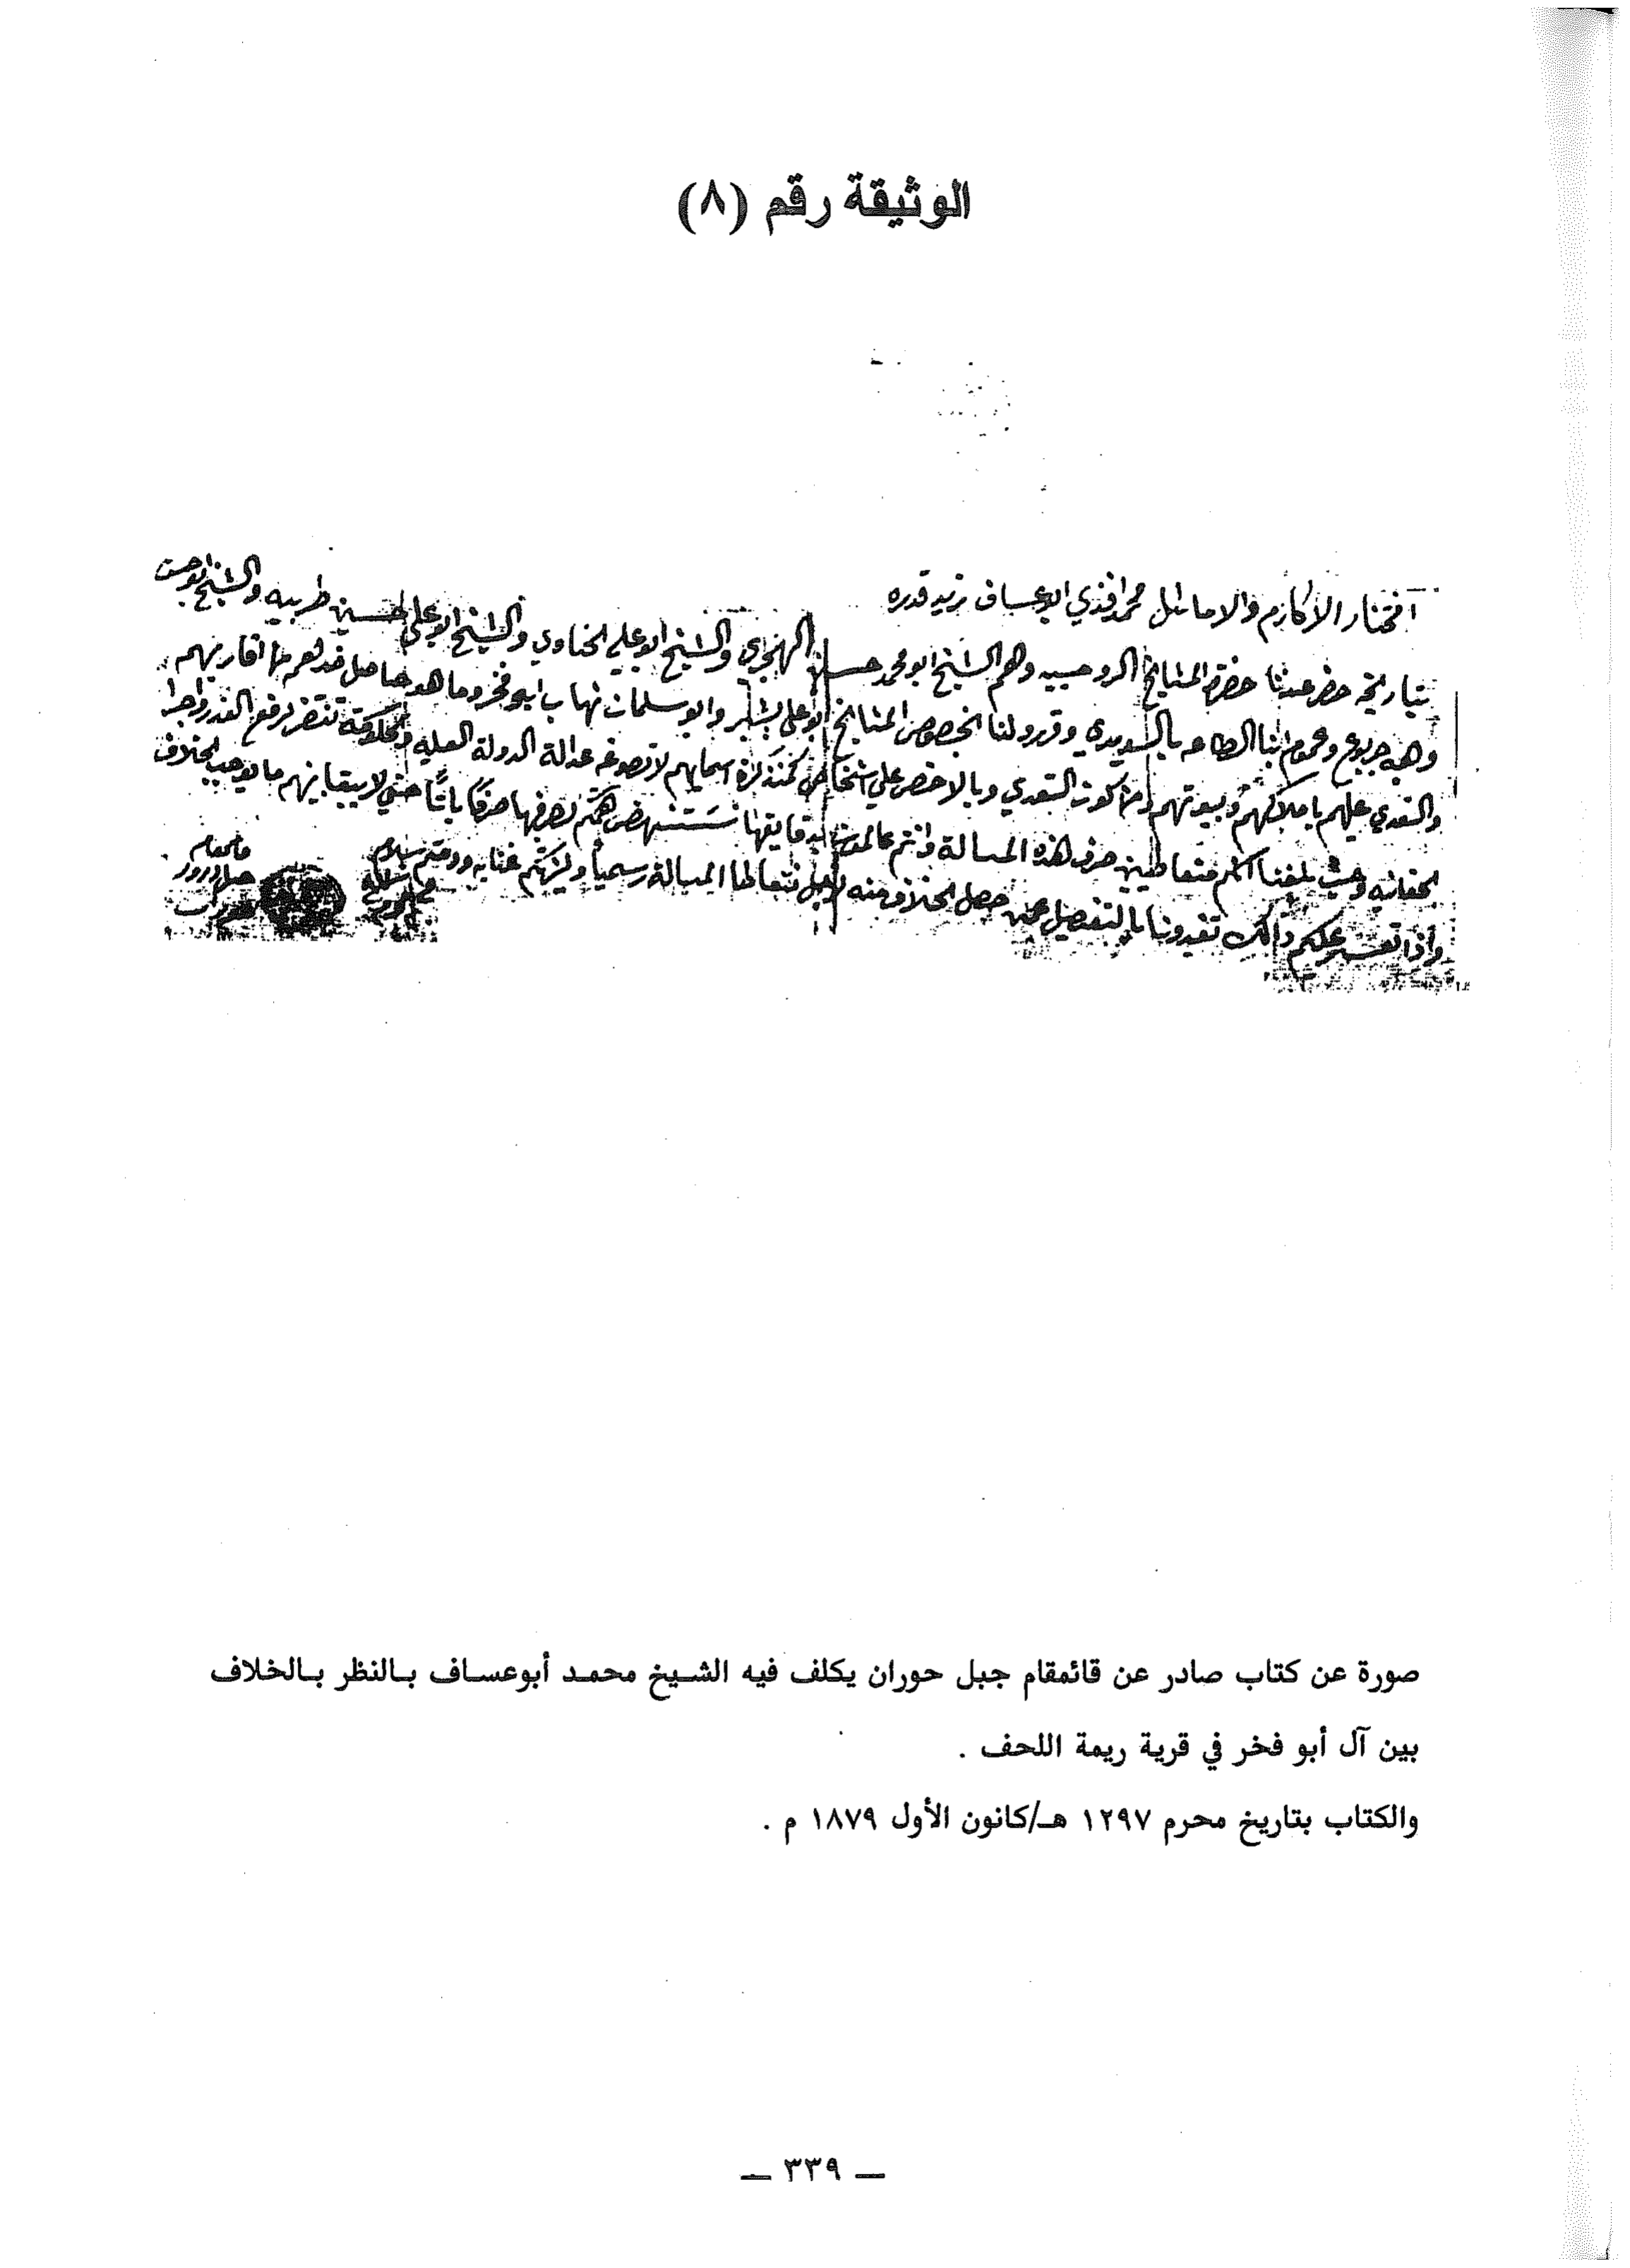 الوثيقة رقم (٨)
افتخار الاكارم والاماثل محمد افندي ابو عساف زيد قدره
بتاريخه حضر عندنا حضرة المشايخ الروحيه وهم الشيخ ابو محمد حسان الهجري والشيخ ابو علي الحناوي والشيخ ابو علي حسين طربيه والشيخ ابو حسن
وهبه جربوع وعموم ابنا الطايفه بالسويدي وقررو لنا بخصوص المشايخ ابو علي بشير وابو سلمان شهاب ابو فخر وما هو حاصل ضدهم من اقاربهم
والتعدي عليهم باملاكهم وبيوتهم كون التعدي وبالاخص علي اسمايهم عدالة الدولة العليه
الحقانيه وحيث بلغنا انكم متعاطيين صرف هذه المسالة وانتم عالمين بدقايقها نستنهض همتكم لصرفها صرفًا باتًا حتي لا يبقا بينهم ما يوجب الخلاف
واذا تعسر عليكم ذالك تفيدونا بالتفصيل عن حصل الخلاف منه لاجل نتعاطا المسالة رسمياً
قايمقام
جبل دروز
حوران
صورة عن كتاب صادر عن قائمقام جبل حوران يكلف فيه الشيخ محمد أبوعساف بالنظر بالخلاف
بين آل أبو فخر في قرية ريمة اللحف .
والكتاب بتاريخ محرم ١٢٩٧ هـ/كانون الأول ١٨٧٩ م .
— ٣٣٩ —